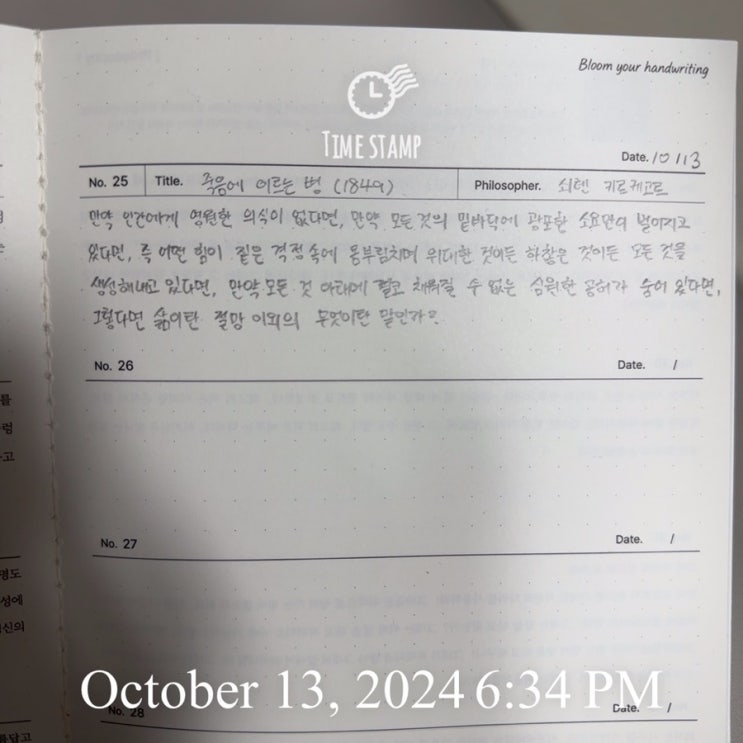 Bloom your handwriting
TIME STAMP
Date. 10/13
No. 25 Title. 죽음에 이르는 병 (1849) Philosopher. 쇠렌 키르케고르
만약 인간에게 영원한 의식이 없다면, 만약 모든 것의 밑바닥에 광포한 소요만이 벌어지고
있다면, 즉 어떤 힘이 짙은 격정 속에 몸부림치며 위대한 것이든 하찮은 것이든 모든 것을
생성해내고 있다면, 만약 모든 것 아래에 결코 채워질 수 없은 심원한 공허가 숨어 있다면,
그렇다면 삶이란 절망 이외의 무엇이란 말인가?
No. 26 Date. /
No. 27 Date. /
No. 28 Date. /
October 13, 2024 6:34 PM
를
고
명도
성에
신의